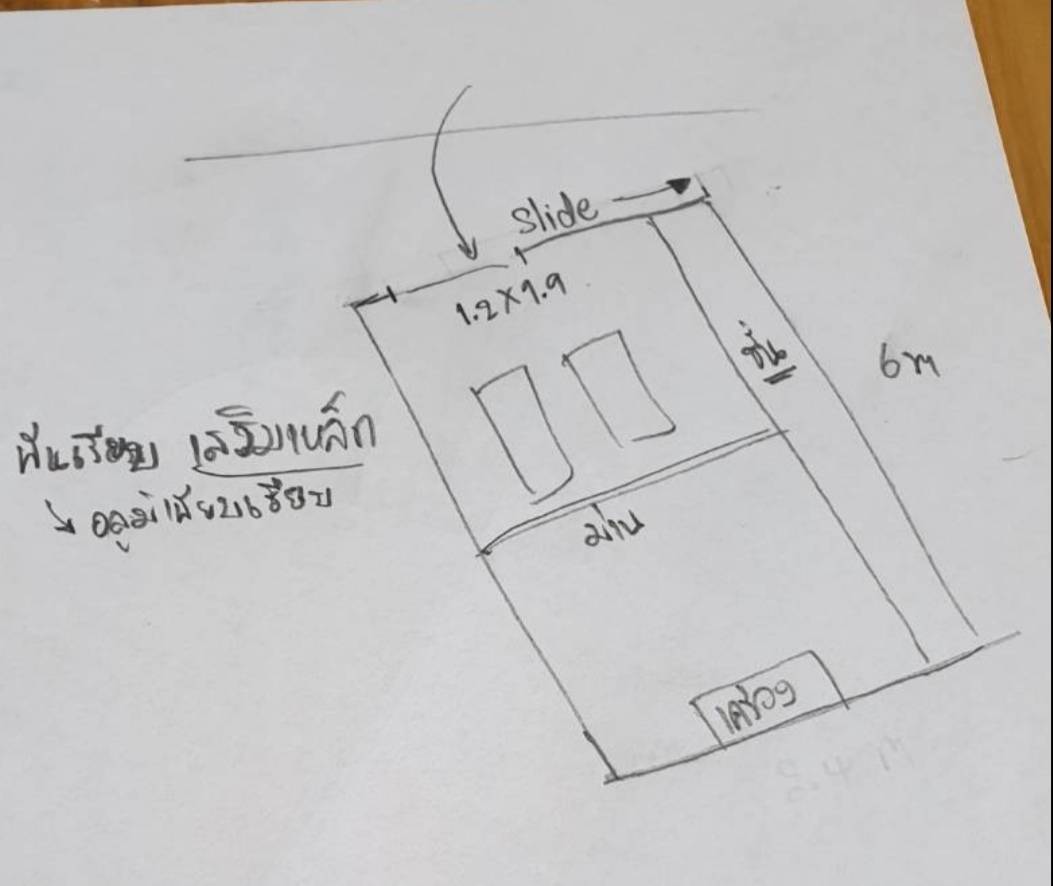 Slide
1.2x1.9
ชั้น
6m
พื้นเรียบ เสริมเหล็ก
อลูมิเนียมเรียบ
ม่าน
เครื่อง